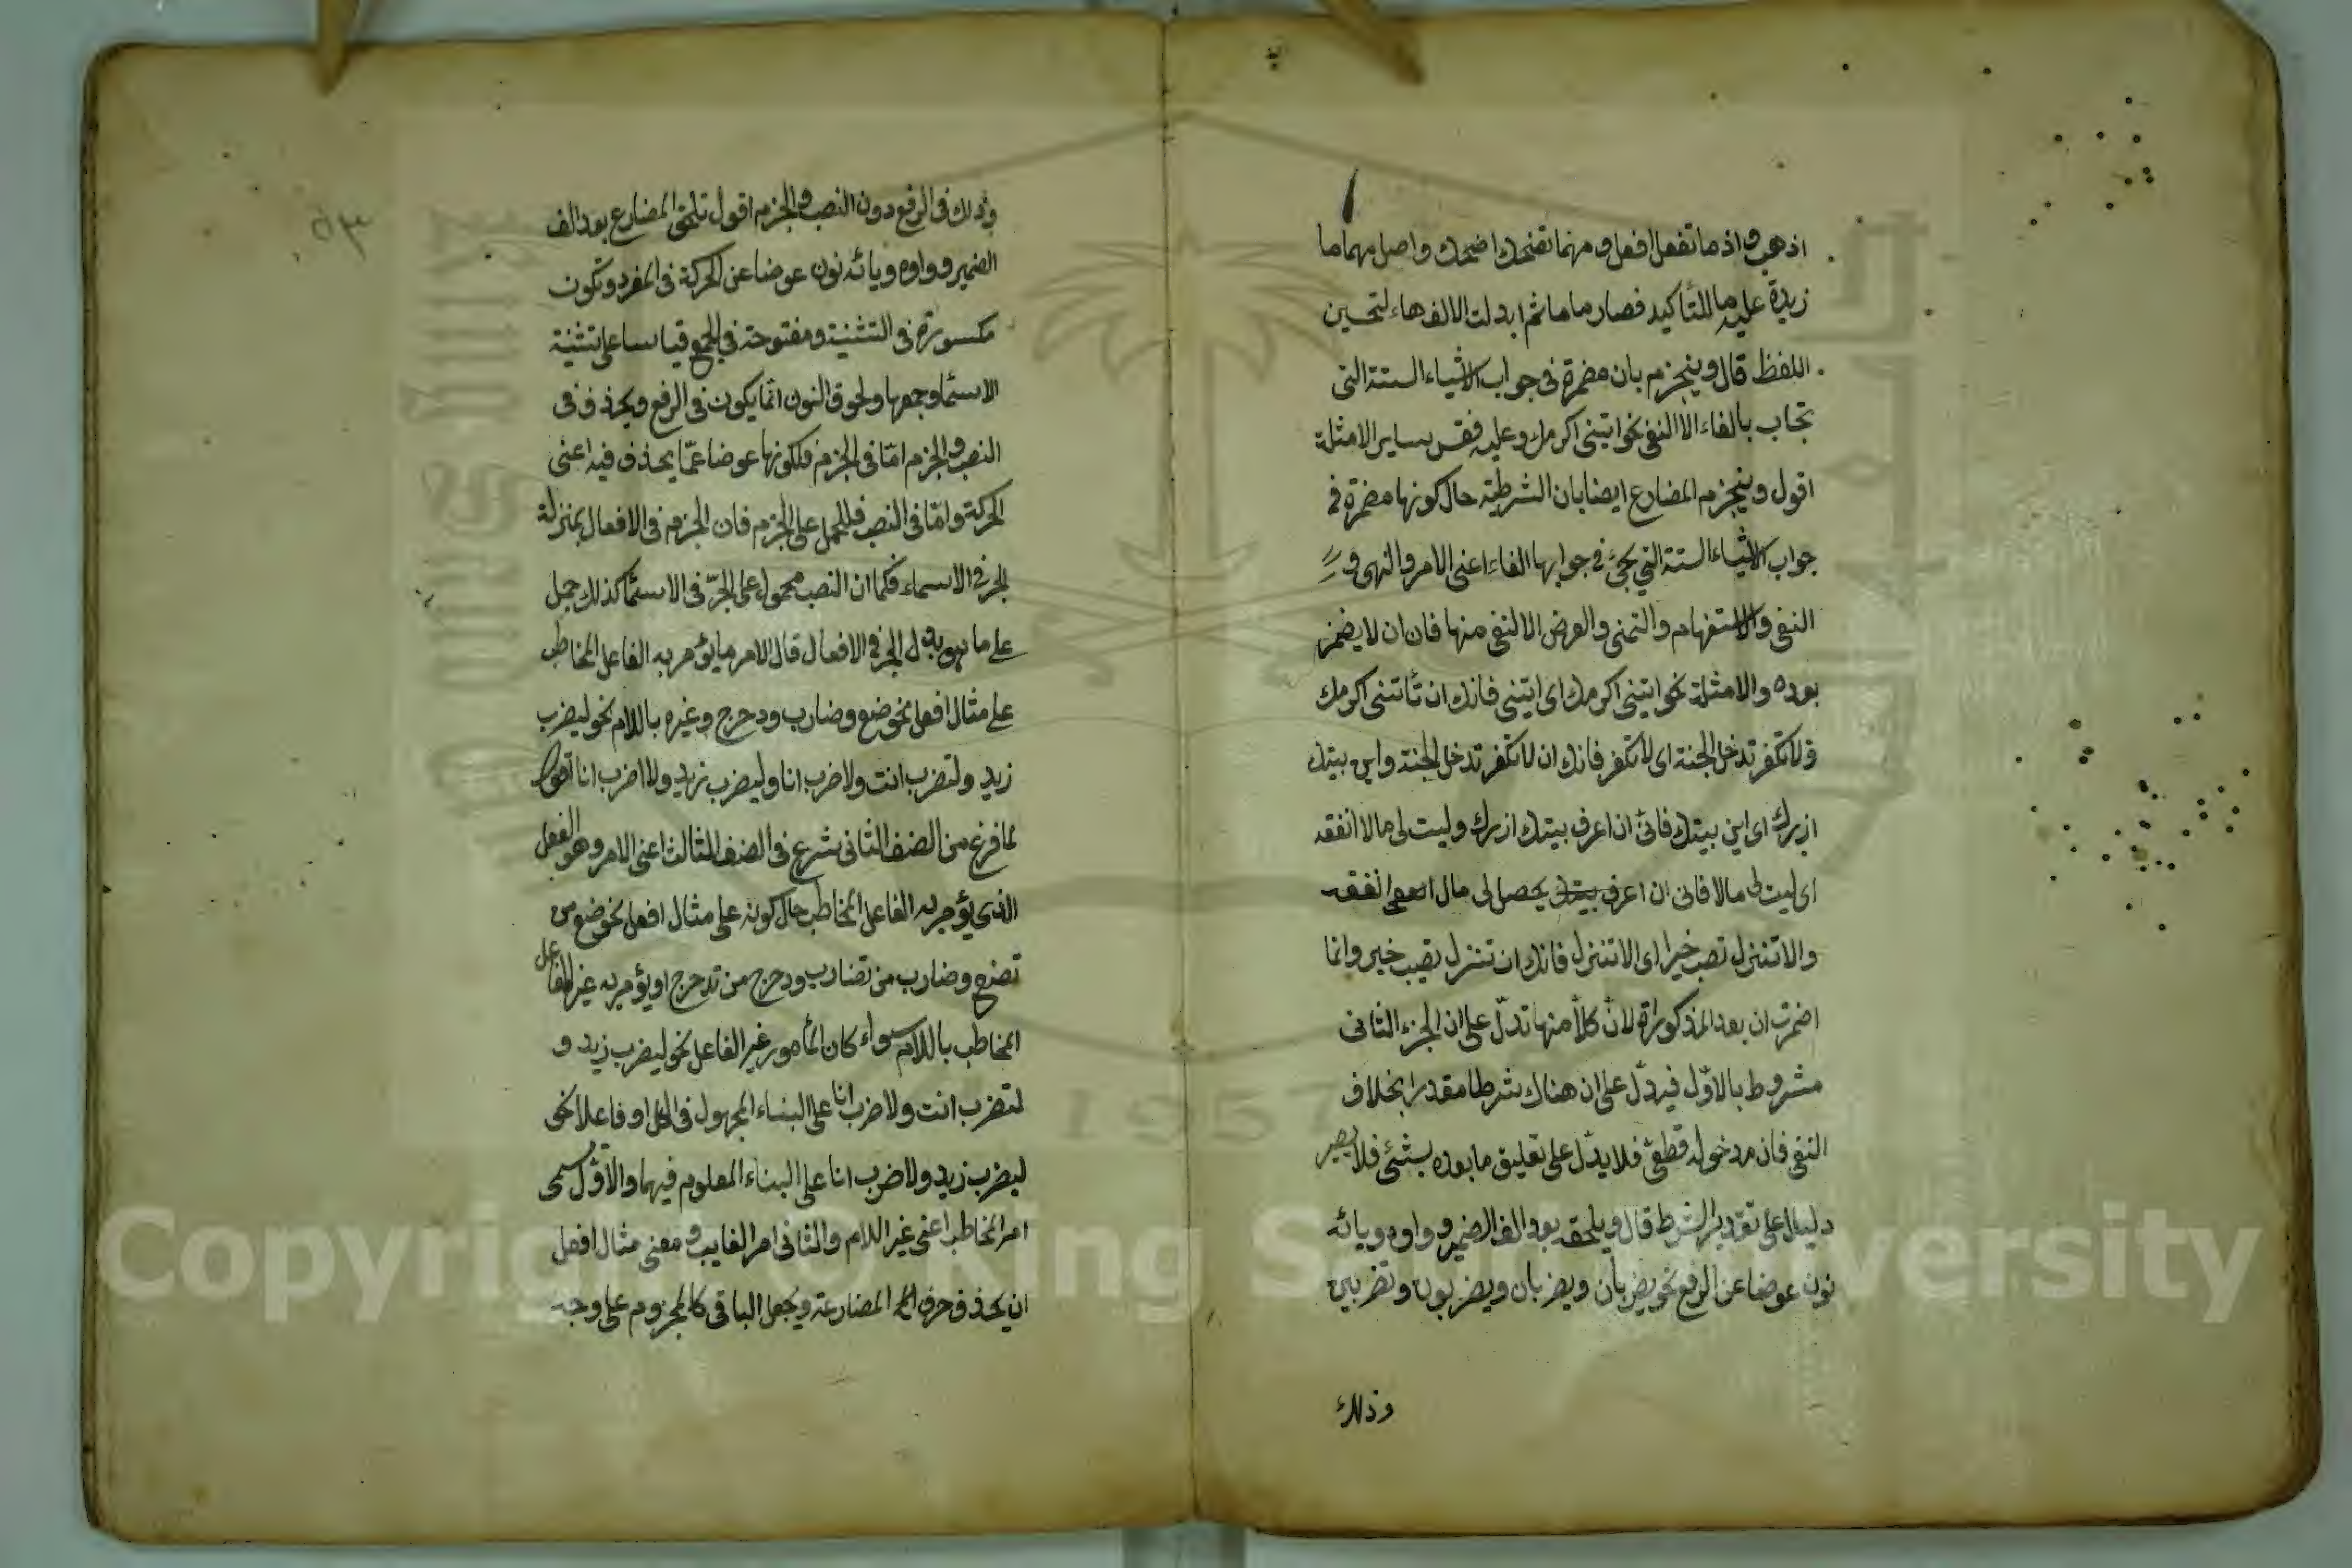 اذهب واذ ما تفعل افعل ومهما تضحك اضحك واصل مهما ما
زيدة عليه ما للتأكيد فصار ماما ثم ابدلت الالف هاء لتحسين
اللفظ قال وينجزم بان مضمرة في جواب الاشياء الستة التي
تجاب بالفاء الا النفي نحو ايتني اكرمك وعليه فقس ساير الامثلة
اقول وينجزم المضارع ايضا بان الشرطية حال كونها مضمرة في
جواب الاشياء الستة التي يجئ في جوابها الفاء اعني الامر والنهي و
النفي والاستفهام والتمني والعرض الا النفي منها فان ان لا يضمر
بعده والامثلة نحو ايتني اكرمك اي ايتني فانك ان تأتني اكرمك
ولا تكفر تدخل الجنة اي لا تكفر فانك ان لا تكفر تدخل الجنة واين بيتك
ازرك اي اين بيتك فانى ان اعرف بيتك ازرك وليت لي مالا انفقه
اي ليت لي مالا فانى ان اعرف بيتك يحصل لي مال انفقه
والا تنزل تصب خيرا اي الا تنزل فانك ان تنزل تصب خير وانما
اضمرت ان بعد المذكوراة لان كلا منها تدل على ان الجزء الثاني
مشروط بالاول فيدل على ان هناك شرطا مقدرا بخلاف
النفي فان مدخوله قطعي فلا يدل على تعليق ما بعده بشئ فلا يصير
دليلا على تقدير الشرط قال ويلحقه بعد الف الضمير وواوه ويائه
نون عوضا عن الرفع نحو يضربان ويضربان ويضربون وتضربين
وذلك
٥٣
وذلك في الرفع دون النصب والجزم اقول تلحق المضارع بعد الف
الضمير وواوه ويائه نون عوضا عن الحركة في المفرد وتكون
مكسورة في التثنية ومفتوحة في الجمع قياسا على تثنية
الاسما وجمعها ولحوق النون انما يكون في الرفع ويحذف في
النصب والجزم اما في الجزم فلكونها عوضا عما يحذف فيه اعني
الحركة واما في النصب فللحمل على الجزم فان الجزم في الافعال بمنزلة
الجر في الاسماء فكما ان النصب محمول على الجر في الاسما كذلك حمل
على ما هو بدل الجر في الافعال قال الامر ما يؤمر به الفاعل المخاطب
على مثال افعل نحو ضع وضارب ودحرج وغيره باللام نحو ليضرب
زيد ولتضرب انت ولاضرب انا وليضرب زيد ولا اضرب انا اقول
لما فرغ من الصنف الثاني شرع في الصنف الثالث اعني الامر وهو الفعل
الذي يؤمر به الفاعل المخاطب حال كونه على مثال افعل نحو ضع من
تضع وضارب من تضارب ودحرج من تدحرج او يؤمر به غير الفاعل
المخاطب باللام سواء كان المأمور غير الفاعل نحو ليضرب زيد و
لتضرب انت ولاضرب انا على البناء المجهول في الكل او فاعلا نحو
ليضرب زيد ولاضرب انا على البناء المعلوم فيهما والاول سمى
امر المخاطب اعني غير اللام والثاني امر الغايب ومعنى مثال افعل
ان يحذف حرف المضارعة ويجعل الباقي كالمجزوم على وجه
Copyright © King Saud University
1957